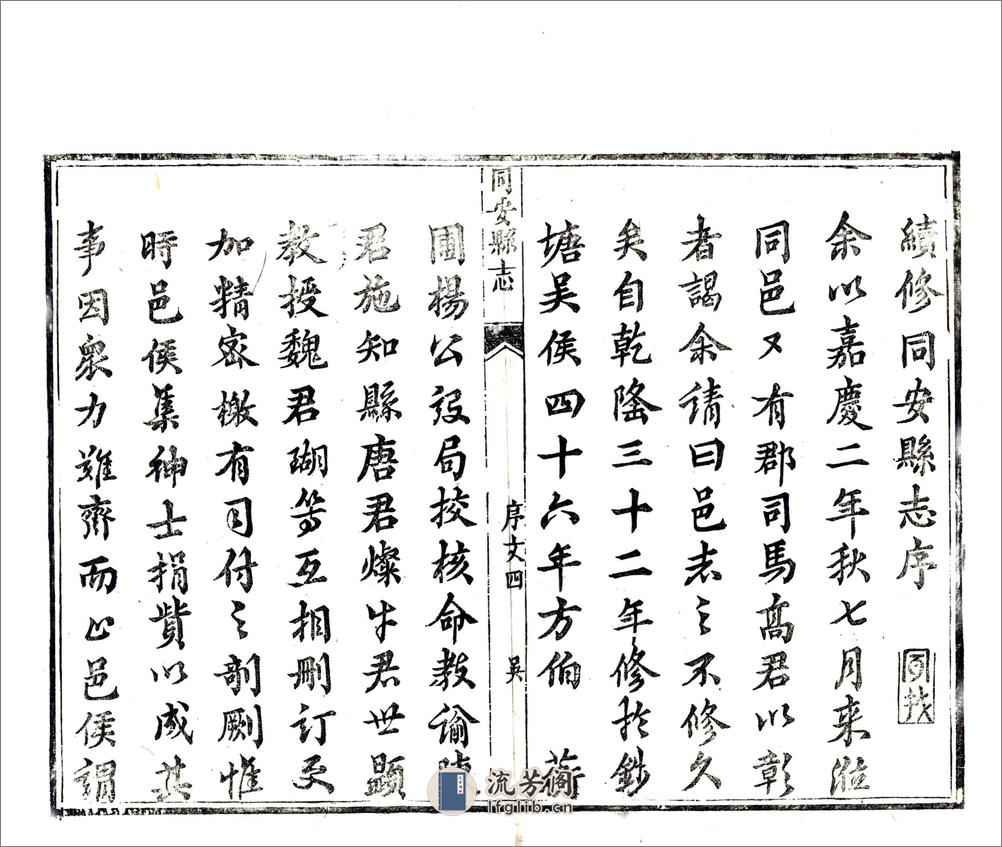 續修同安縣志序
余以嘉慶二年秋七月來涖
同邑又有郡司馬髙君以彰
者謁余請曰邑志之不修久
矣自乾隆三十二年修扵鈔
塘吴侯四十六年方伯 蘅
圃楊公設局挍核命教諭陳
君施知縣唐君燦牛君世顯
教授魏君瑚等互相刪訂更
加精宻檄有司付之剞劂惟
時邑侯集紳士捐貲以成其
事因衆力難齊而止邑侯謂
同安縣志
序文四
吴
流芳阁
lfglib.cn